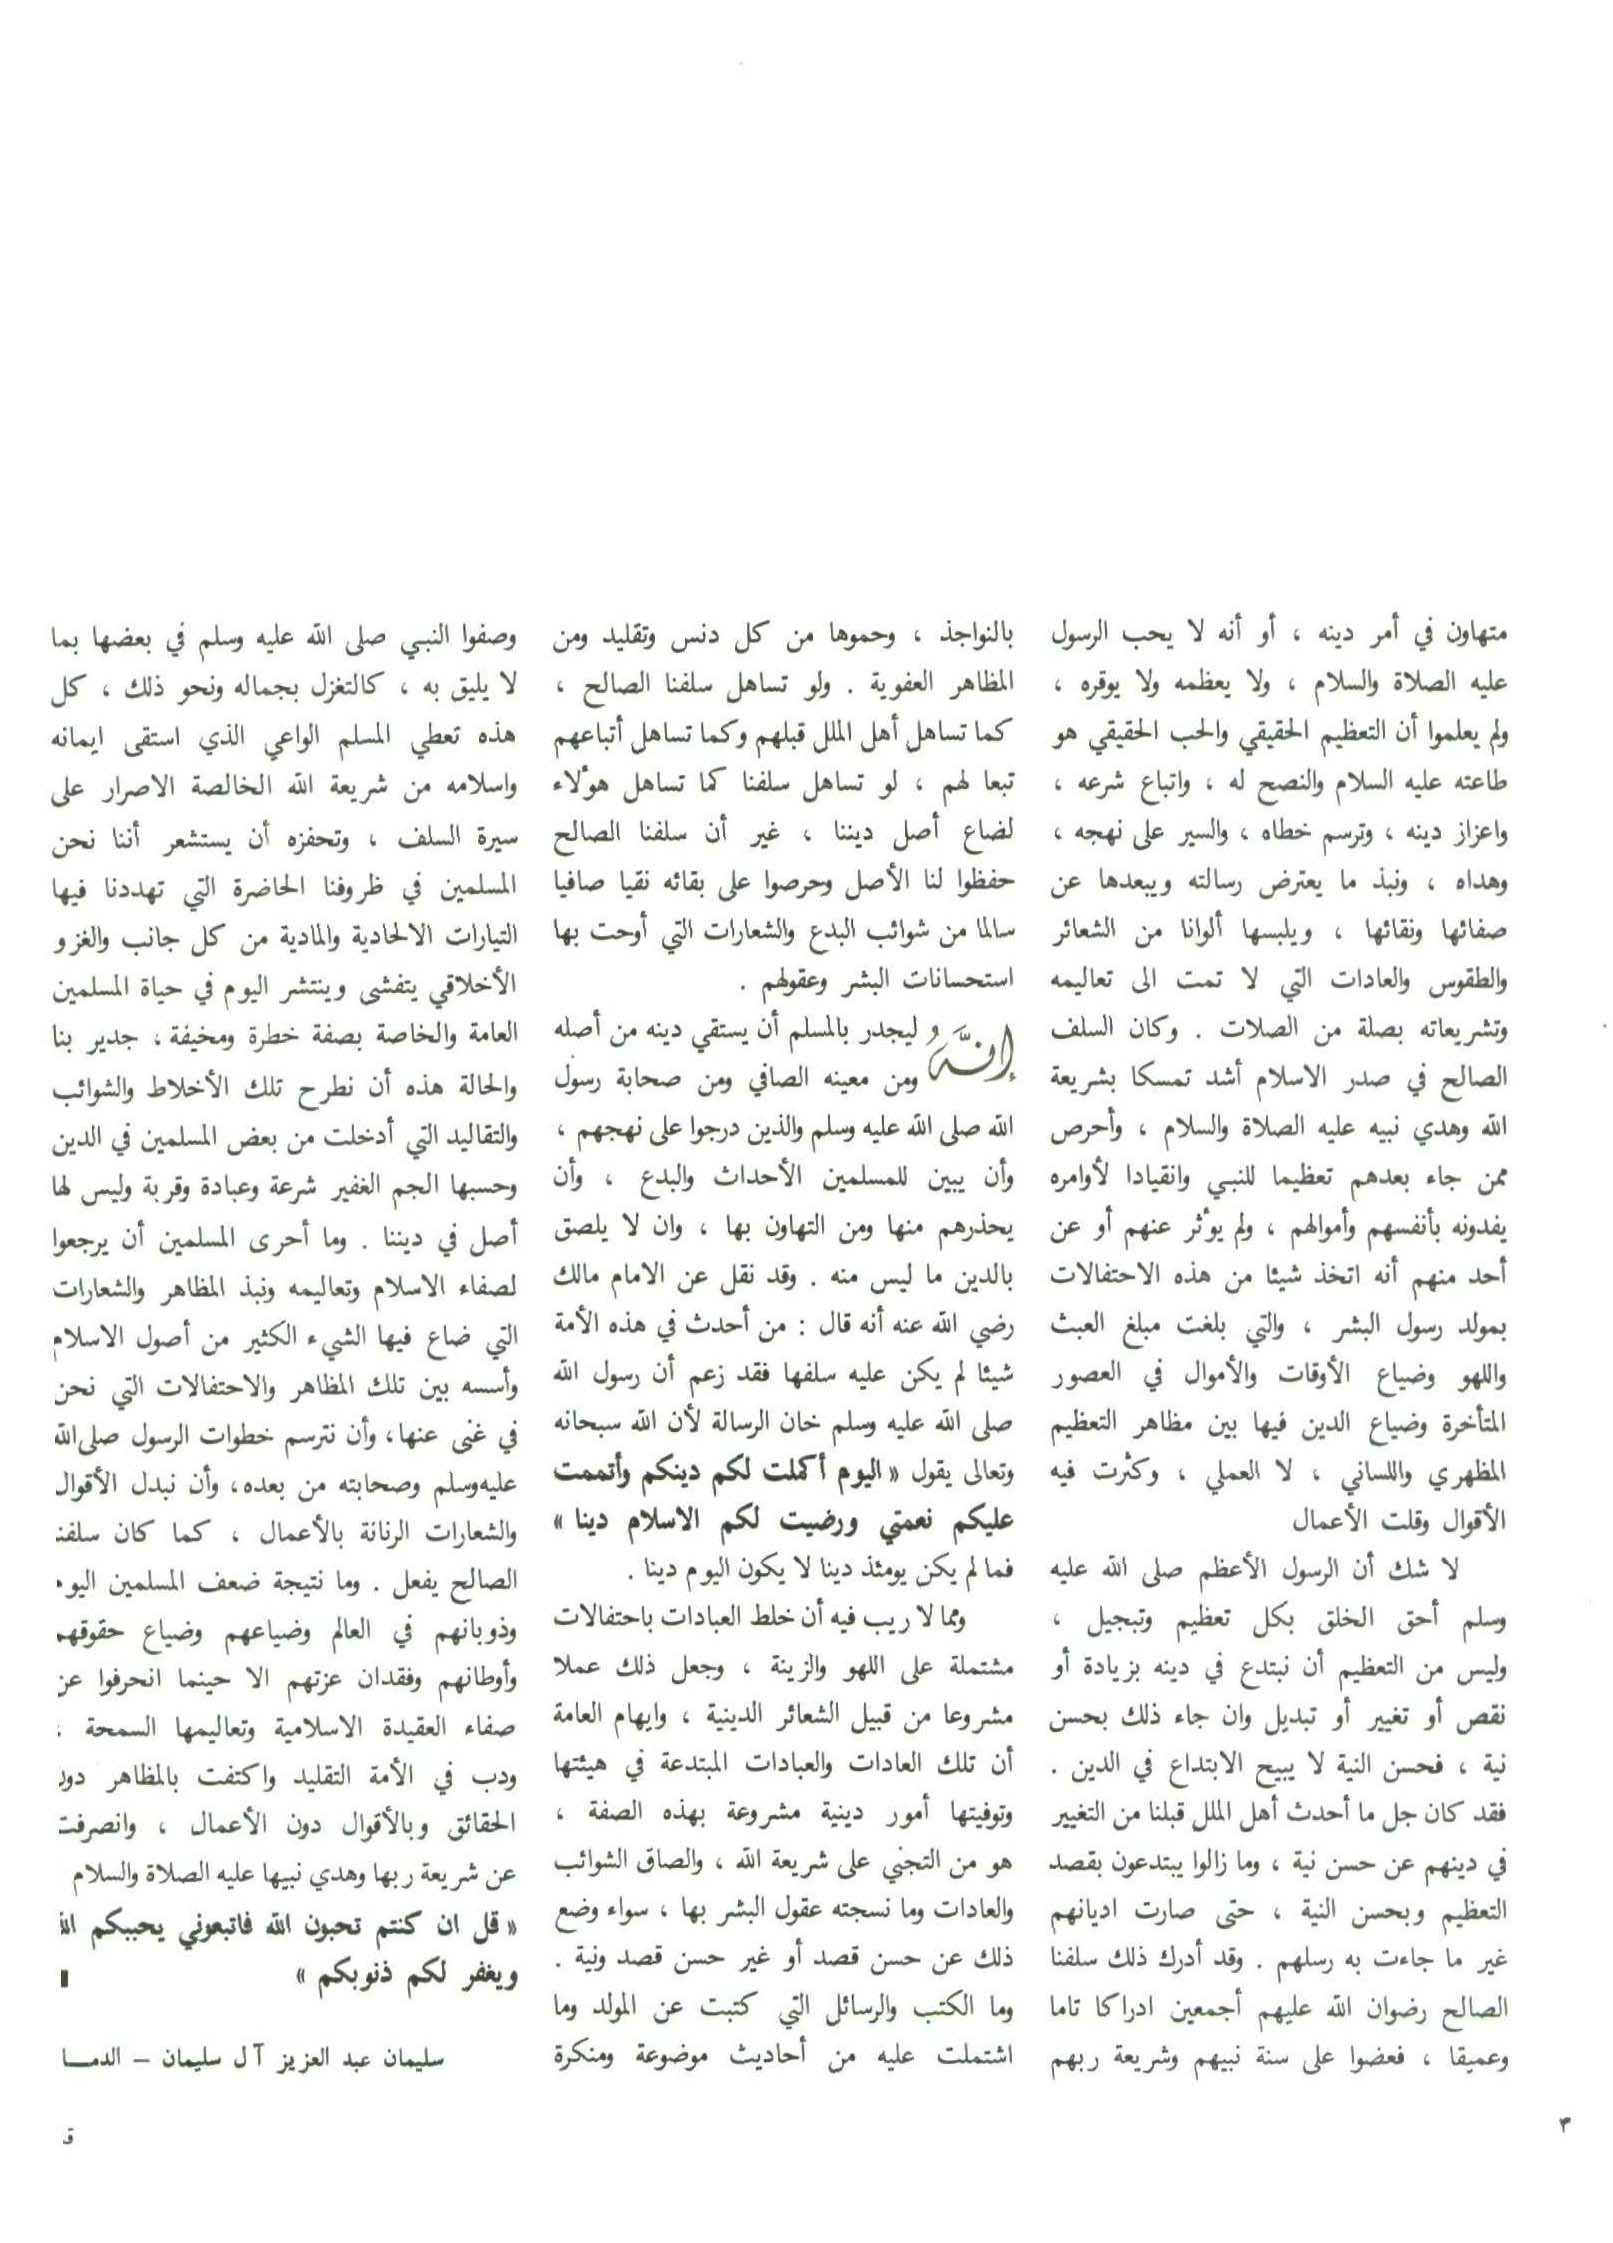 متهاون في أمر دينه ، أو أنه لا يحب الرسول
عليه الصلاة والسلام ، ولا يعظمه ولا يوقره ،
ولم يعلموا أن التعظيم الحقيقي والحب الحقيقي هو
طاعته عليه السلام والنصح له ، واتباع شرعه ،
واعزاز دينه ، وترسم خطاه ، والسير على نهجه ،
وهداه ، ونبذ ما يعترض رسالته ويبعدها عن
صفائها ونقائها ، ويلبسها ألوانا من الشعائر
والطقوس والعادات التي لا تمت الى تعاليمه
وتشريعاته بصلة من الصلات . وكان السلف
الصالح في صدر الاسلام أشد تمسكا بشريعة
الله وهدي نبيه عليه الصلاة والسلام ، وأحرص
ممن جاء بعدهم تعظيما للنبي وانقيادا لأوامره
يفدونه بأنفسهم وأموالهم ، ولم يؤثر عنهم أو عن
أحد منهم أنه اتخذ شيئا من هذه الاحتفالات
بمولد رسول البشر ، والتي بلغت مبلغ العبث
واللهو وضياع الأوقات والأموال في العصور
المتأخرة وضياع الدين فيها بين مظاهر التعظيم
المظهري واللساني ، لا العملي ، وكثرت فيه
الأقوال وقلت الأعمال
لا شك أن الرسول الأعظم صلى الله عليه
وسلم أحق الخلق بكل تعظيم وتبجيل ،
وليس من التعظيم أن نبتدع في دينه بزيادة أو
نقص أو تغيير أو تبديل وان جاء ذلك بحسن
نية ، فحسن النية لا يبيح الابتداع في الدين .
فقد كان جل ما أحدث أهل الملل قبلنا من التغيير
في دينهم عن حسن نية ، وما زالوا يبتدعون بقصد
التعظيم وبحسن النية ، حتى صارت اديانهم
غير ما جاءت به رسلهم . وقد أدرك ذلك سلفنا
الصالح رضوان الله عليهم أجمعين ادراكا تاما
وعميقا ، فعضوا على سنة نبيهم وشريعة ربهم
بالنواجذ ، وحموها من كل دنس وتقليد ومن
المظاهر العفوية . ولو تساهل سلفنا الصالح ،
كما تساهل أهل الملل قبلهم وكما تساهل أتباعهم
تبعا لهم ، لو تساهل سلفنا كما تساهل هؤلاء
لضاع أصل ديننا ، غير أن سلفنا الصالح
حفظوا لنا الأصل وحرصوا على بقائه نقيا صافيا
سالما من شوائب البدع والشعارات التي أوحت بها
استحسانات البشر وعقولهم .
إنَّهُ ليجدر بالمسلم أن يستقي دينه من أصله
ومن معينه الصافي ومن صحابة رسول
الله صلى الله عليه وسلم والذين درجوا على نهجهم ،
وأن يبين للمسلمين الأحداث والبدع ، وأن
يحذرهم منها ومن التهاون بها ، وان لا يلصق
بالدين ما ليس منه . وقد نقل عن الامام مالك
رضي الله عنه أنه قال : من أحدث في هذه الأمة
شيئا لم يكن عليه سلفها فقد زعم أن رسول الله
صلى الله عليه وسلم خان الرسالة لأن الله سبحانه
وتعالى يقول « اليوم أكملت لكم دينكم وأتممت
عليكم نعمتي ورضيت لكم الاسلام دينا »
فما لم يكن يومئذ دينا لا يكون اليوم دينا .
ومما لا ريب فيه أن خلط العبادات باحتفالات
مشتملة على اللهو والزينة ، وجعل ذلك عملا
مشروعا من قبيل الشعائر الدينية ، وايهام العامة
أن تلك العادات والعبادات المبتدعة في هيئتها
وتوفيتها أمور دينية مشروعة بهذه الصفة ،
هو من التجني على شريعة الله ، والصاق الشوائب
والعادات وما نسجته عقول البشر بها ، سواء وضع
ذلك عن حسن قصد أو غير حسن قصد ونية .
وما الكتب والرسائل التي كتبت عن المولد وما
اشتملت عليه من أحاديث موضوعة ومنكرة
وصفوا النبي صلى الله عليه وسلم في بعضها بما
لا يليق به ، كالتغزل بجماله ونحو ذلك ، كل
هذه تعطي المسلم الواعي الذي استقى ايمانه
واسلامه من شريعة الله الخالصة الاصرار على
سيرة السلف ، وتحفزه أن يستشعر أننا نحن
المسلمين في ظروفنا الحاضرة التي تهددنا فيها
التيارات الالحادية والمادية من كل جانب والغزو
الأخلاقي يتفشى وينتشر اليوم في حياة المسلمين
العامة والخاصة بصفة خطرة ومخيفة ، جدير بنا
والحالة هذه أن نطرح تلك الأخلاط والشوائب
والتقاليد التي أدخلت من بعض المسلمين في الدين
وحسبها الجم الغفير شرعة وعبادة وقربة وليس لها
أصل في ديننا . وما أحرى المسلمين أن يرجعوا
لصفاء الاسلام وتعاليمه ونبذ المظاهر والشعارات
التي ضاع فيها الشيء الكثير من أصول الاسلام
وأسسه بين تلك المظاهر والاحتفالات التي نحن
في غنى عنها، وأن نترسم خطوات الرسول صلى الله
عليه وسلم وصحابته من بعده، وأن نبدل الأقوال
والشعارات الرنانة بالأعمال ، كما كان سلفنا
الصالح يفعل . وما نتيجة ضعف المسلمين اليوم
وذوبانهم في العالم وضياعهم وضياع حقوقهم
وأوطانهم وفقدان عزتهم الا حينما انحرفوا عن
صفاء العقيدة الاسلامية وتعاليمها السمحة ،
ودب في الأمة التقليد واكتفت بالمظاهر دون
الحقائق وبالأقوال دون الأعمال ، وانصرفت
عن شريعة ربها وهدي نبيها عليه الصلاة والسلام
« قل ان كنتم تحبون الله فاتبعوني يحببكم الله
ويغفر لكم ذنوبكم »
سليمان عبد العزيز آل سليمان – الدمـــا
٣